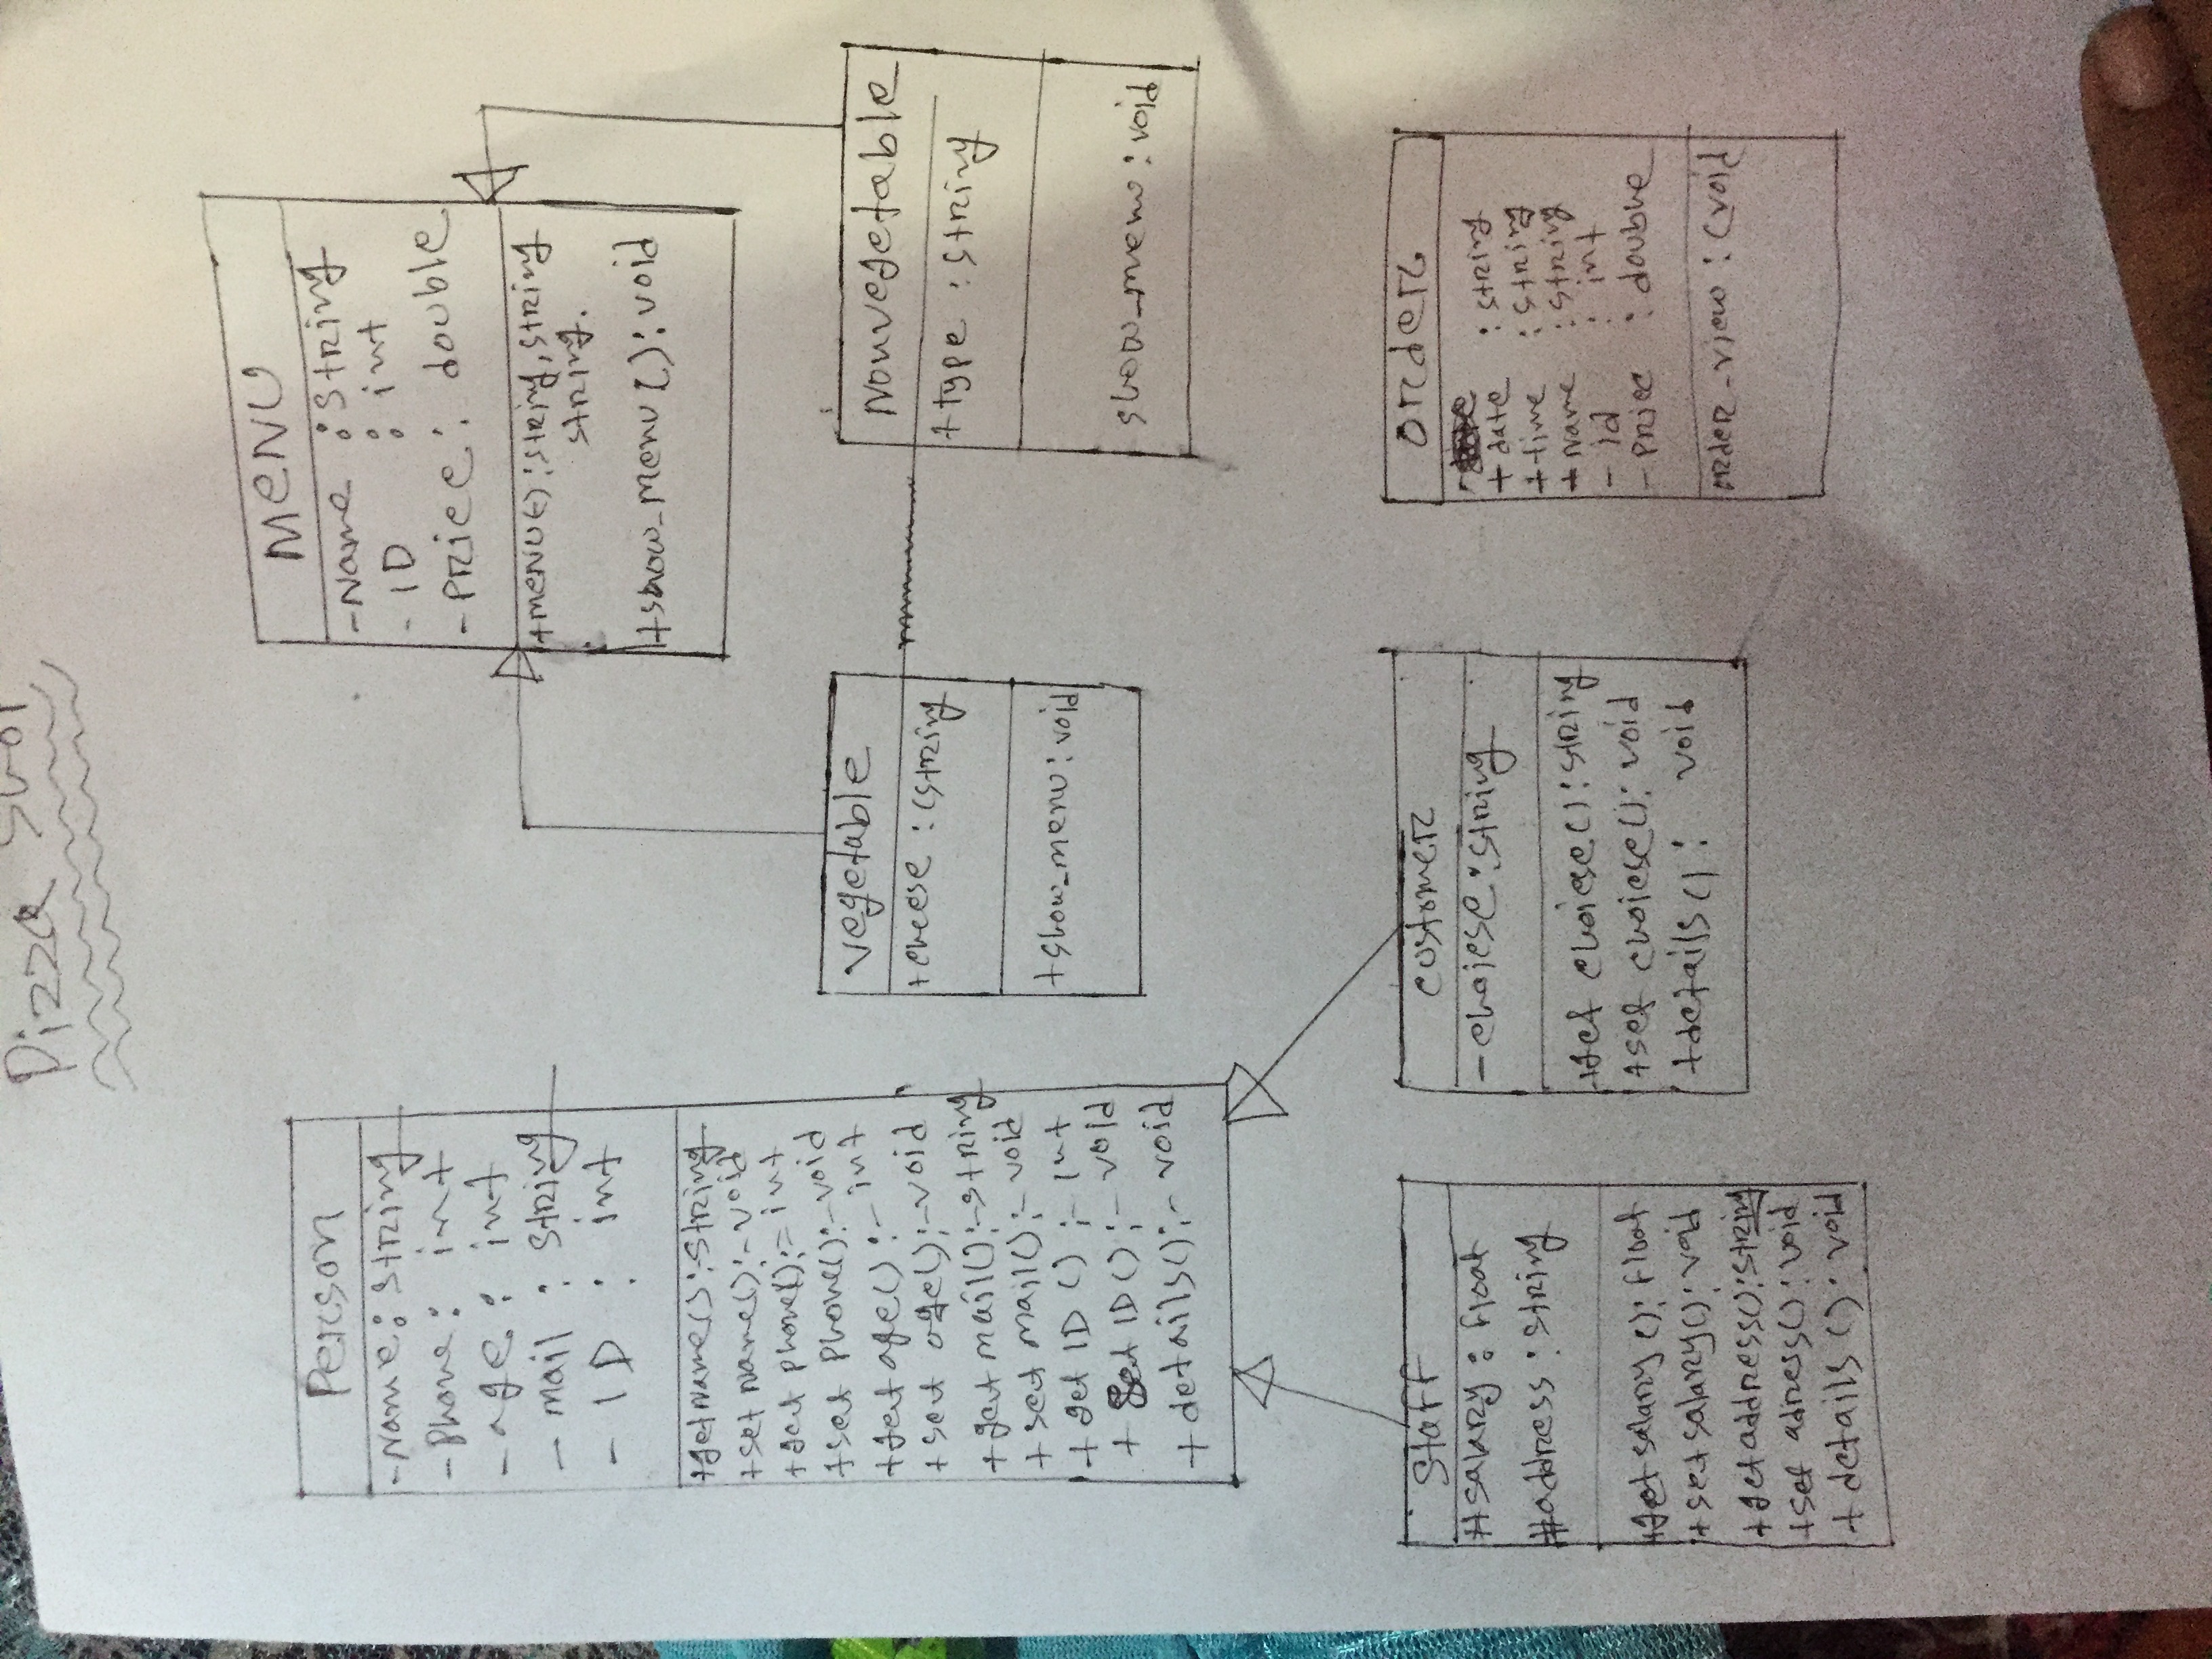 Pizza Shop
Person
-Name: String
-Phone: int
-age: int
-mail: String
-ID: int
+getName():-String
+set Name():-void
+get phone():= int
+set Phone():-void
+get age():-int
+set age():-void
+get mail():-string
+set mail():-void
+get ID():-int
+set ID():-void
+details():-void
MENU
-Name :String
-ID : int
-Price: double
+MENU():String, String
String.
+show_menu():void
vegetable
+cheese :(String
+show_menu:void
Nonvegetable
+type :String
show_menu:void
Staff
#salary: float
#address: String
+get salary(): float
+set salary(): void
+get address():string
+set adress():void
+details():void
customer
-choiese:String
+get choiese():String
+set choiese(): void
+details(): void
order
+date : String
+time : String
+Name : String
-id : int
-Price : double
order_view :(void